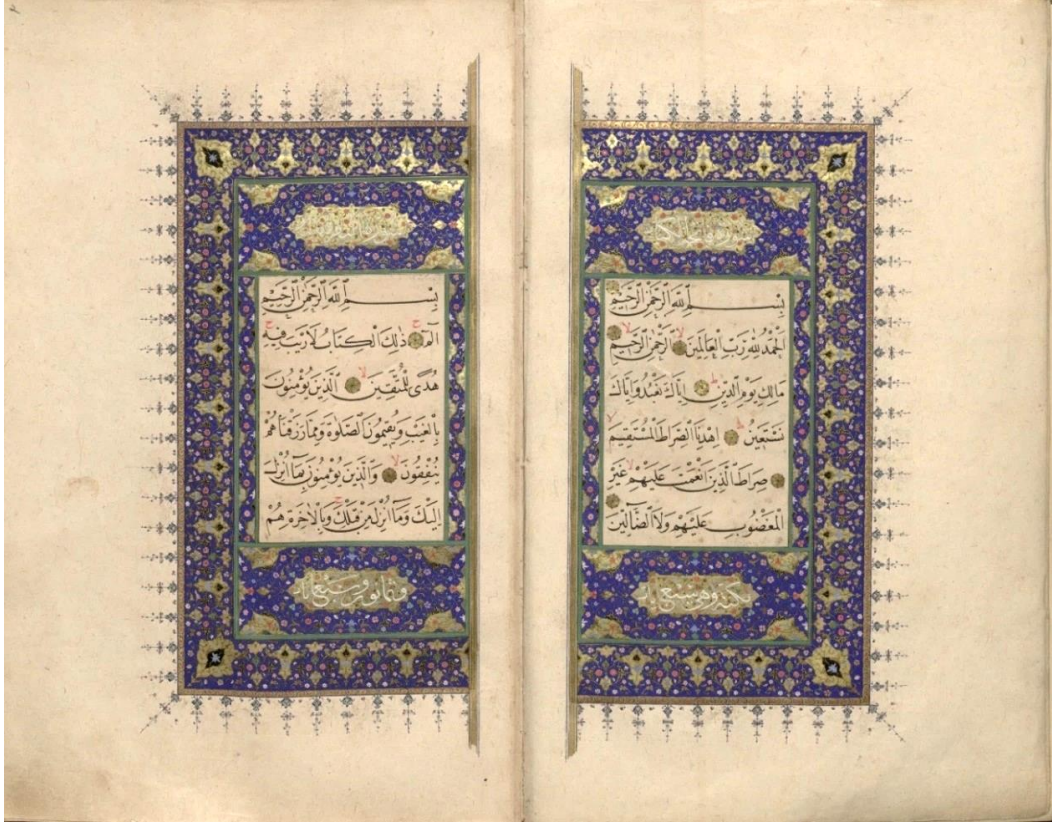 بِسْمِ ٱللَّهِ ٱلرَّحْمٰنِ ٱلرَّحِيمِ
اَلْحَمْدُ لِلّٰهِ رَبِّ الْعَالَمِينَ اَلرَّحْمٰنِ الرَّحِيمِ
مَالِكِ يَوْمِ الدِّينِ اِيَّاكَ نَعْبُدُ وَاِيَّاكَ
نَسْتَعِينُ اِهْدِنَا الصِّرَاطَ الْمُسْتَقِيمَ
صِرَاطَ الَّذِينَ اَنْعَمْتَ عَلَيْهِمْ غَيْرِ
الْمَغْضُوبِ عَلَيْهِمْ وَلَا الضَّالِّينَ
وهي سبع
بِسْمِ ٱللَّهِ ٱلرَّحْمٰنِ ٱلرَّحِيمِ
الٓمٓ ذٰلِكَ الْكِتَابُ لَا رَيْبَ فِيهِ
هُدًى لِلْمُتَّقِينَ اَلَّذِينَ يُؤْمِنُونَ
بِالْغَيْبِ وَيُقِيمُونَ الصَّلٰوةَ وَمِمَّا رَزَقْنَاهُمْ
يُنْفِقُونَ وَالَّذِينَ يُؤْمِنُونَ بِمَا اُنْزِلَ
اِلَيْكَ وَمَا اُنْزِلَ مِنْ قَبْلِكَ وَبِالْاٰخِرَةِ هُمْ
وثمانون وسبع